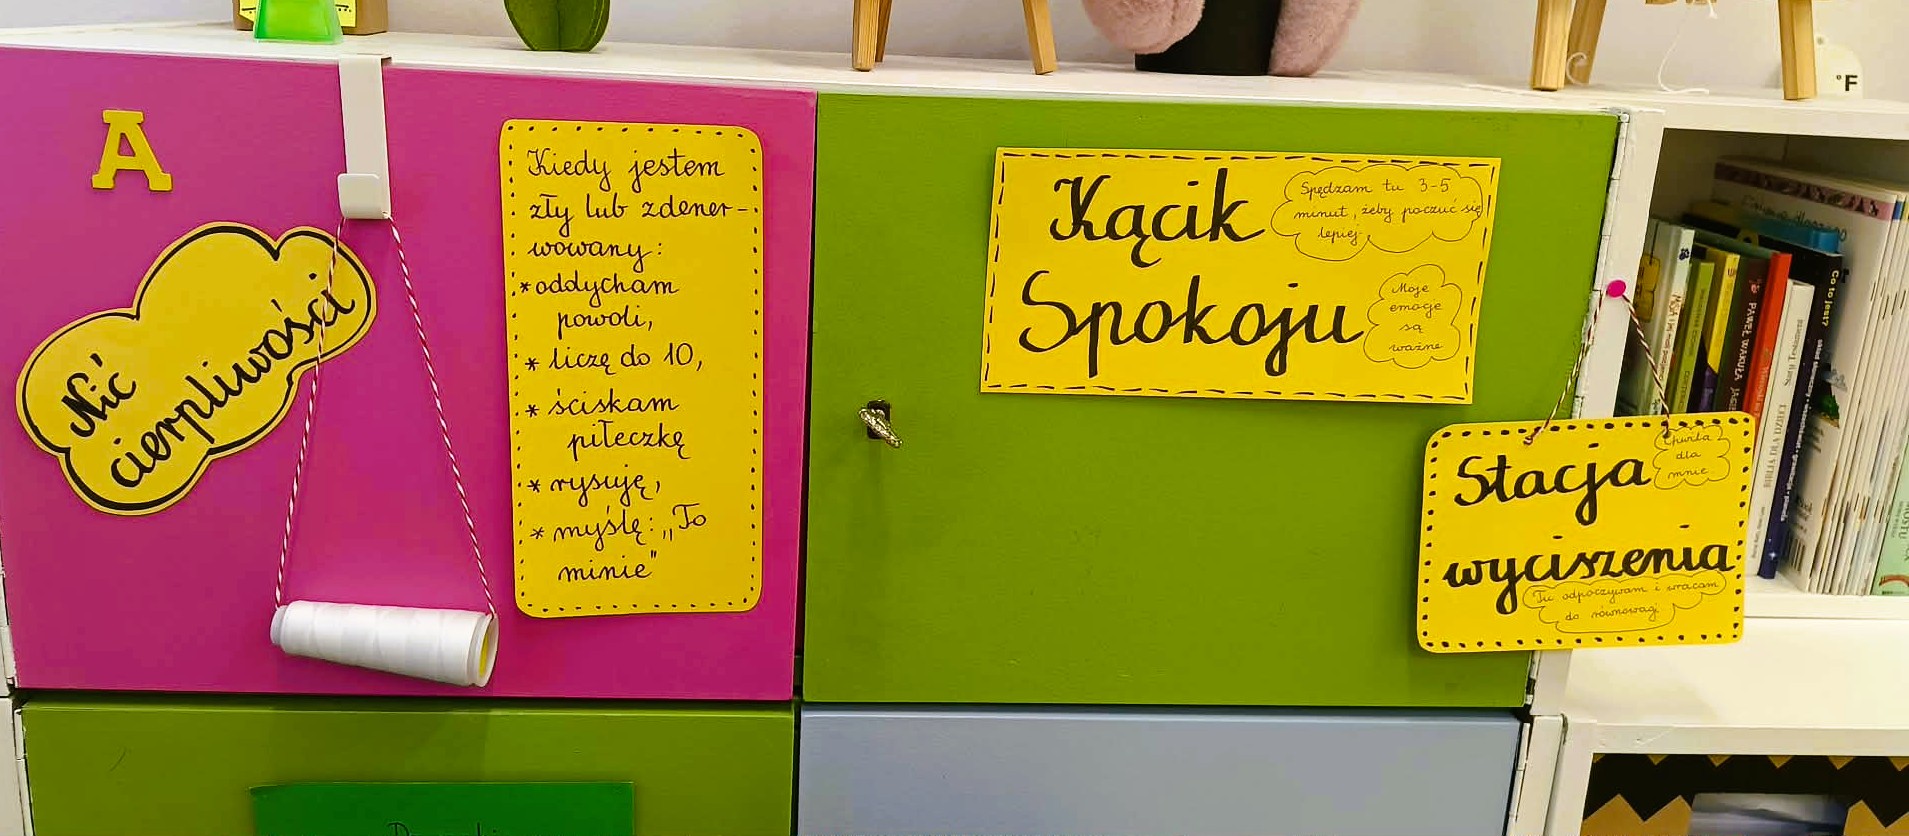 A
Nić
cierpliwości
Kiedy jestem
zły lub zdener-
wowany:
*oddycham
powoli,
* liczę do 10,
* ściskam
piłeczkę
* rysuję,
* myślę: „To
minie"
Kącik
Spokoju
Spędzam tu 3-5
minut, żeby poczuć się
lepiej
Moje
emocje
są
ważne
Stacja
wyciszenia
Chwila
dla
mnie
Tu odpoczywam i wracam
do równowagi
°F
PAWEŁ WAKUŁA
BIBLIA DLA DZIECI
Stary Testament
Co to jest?